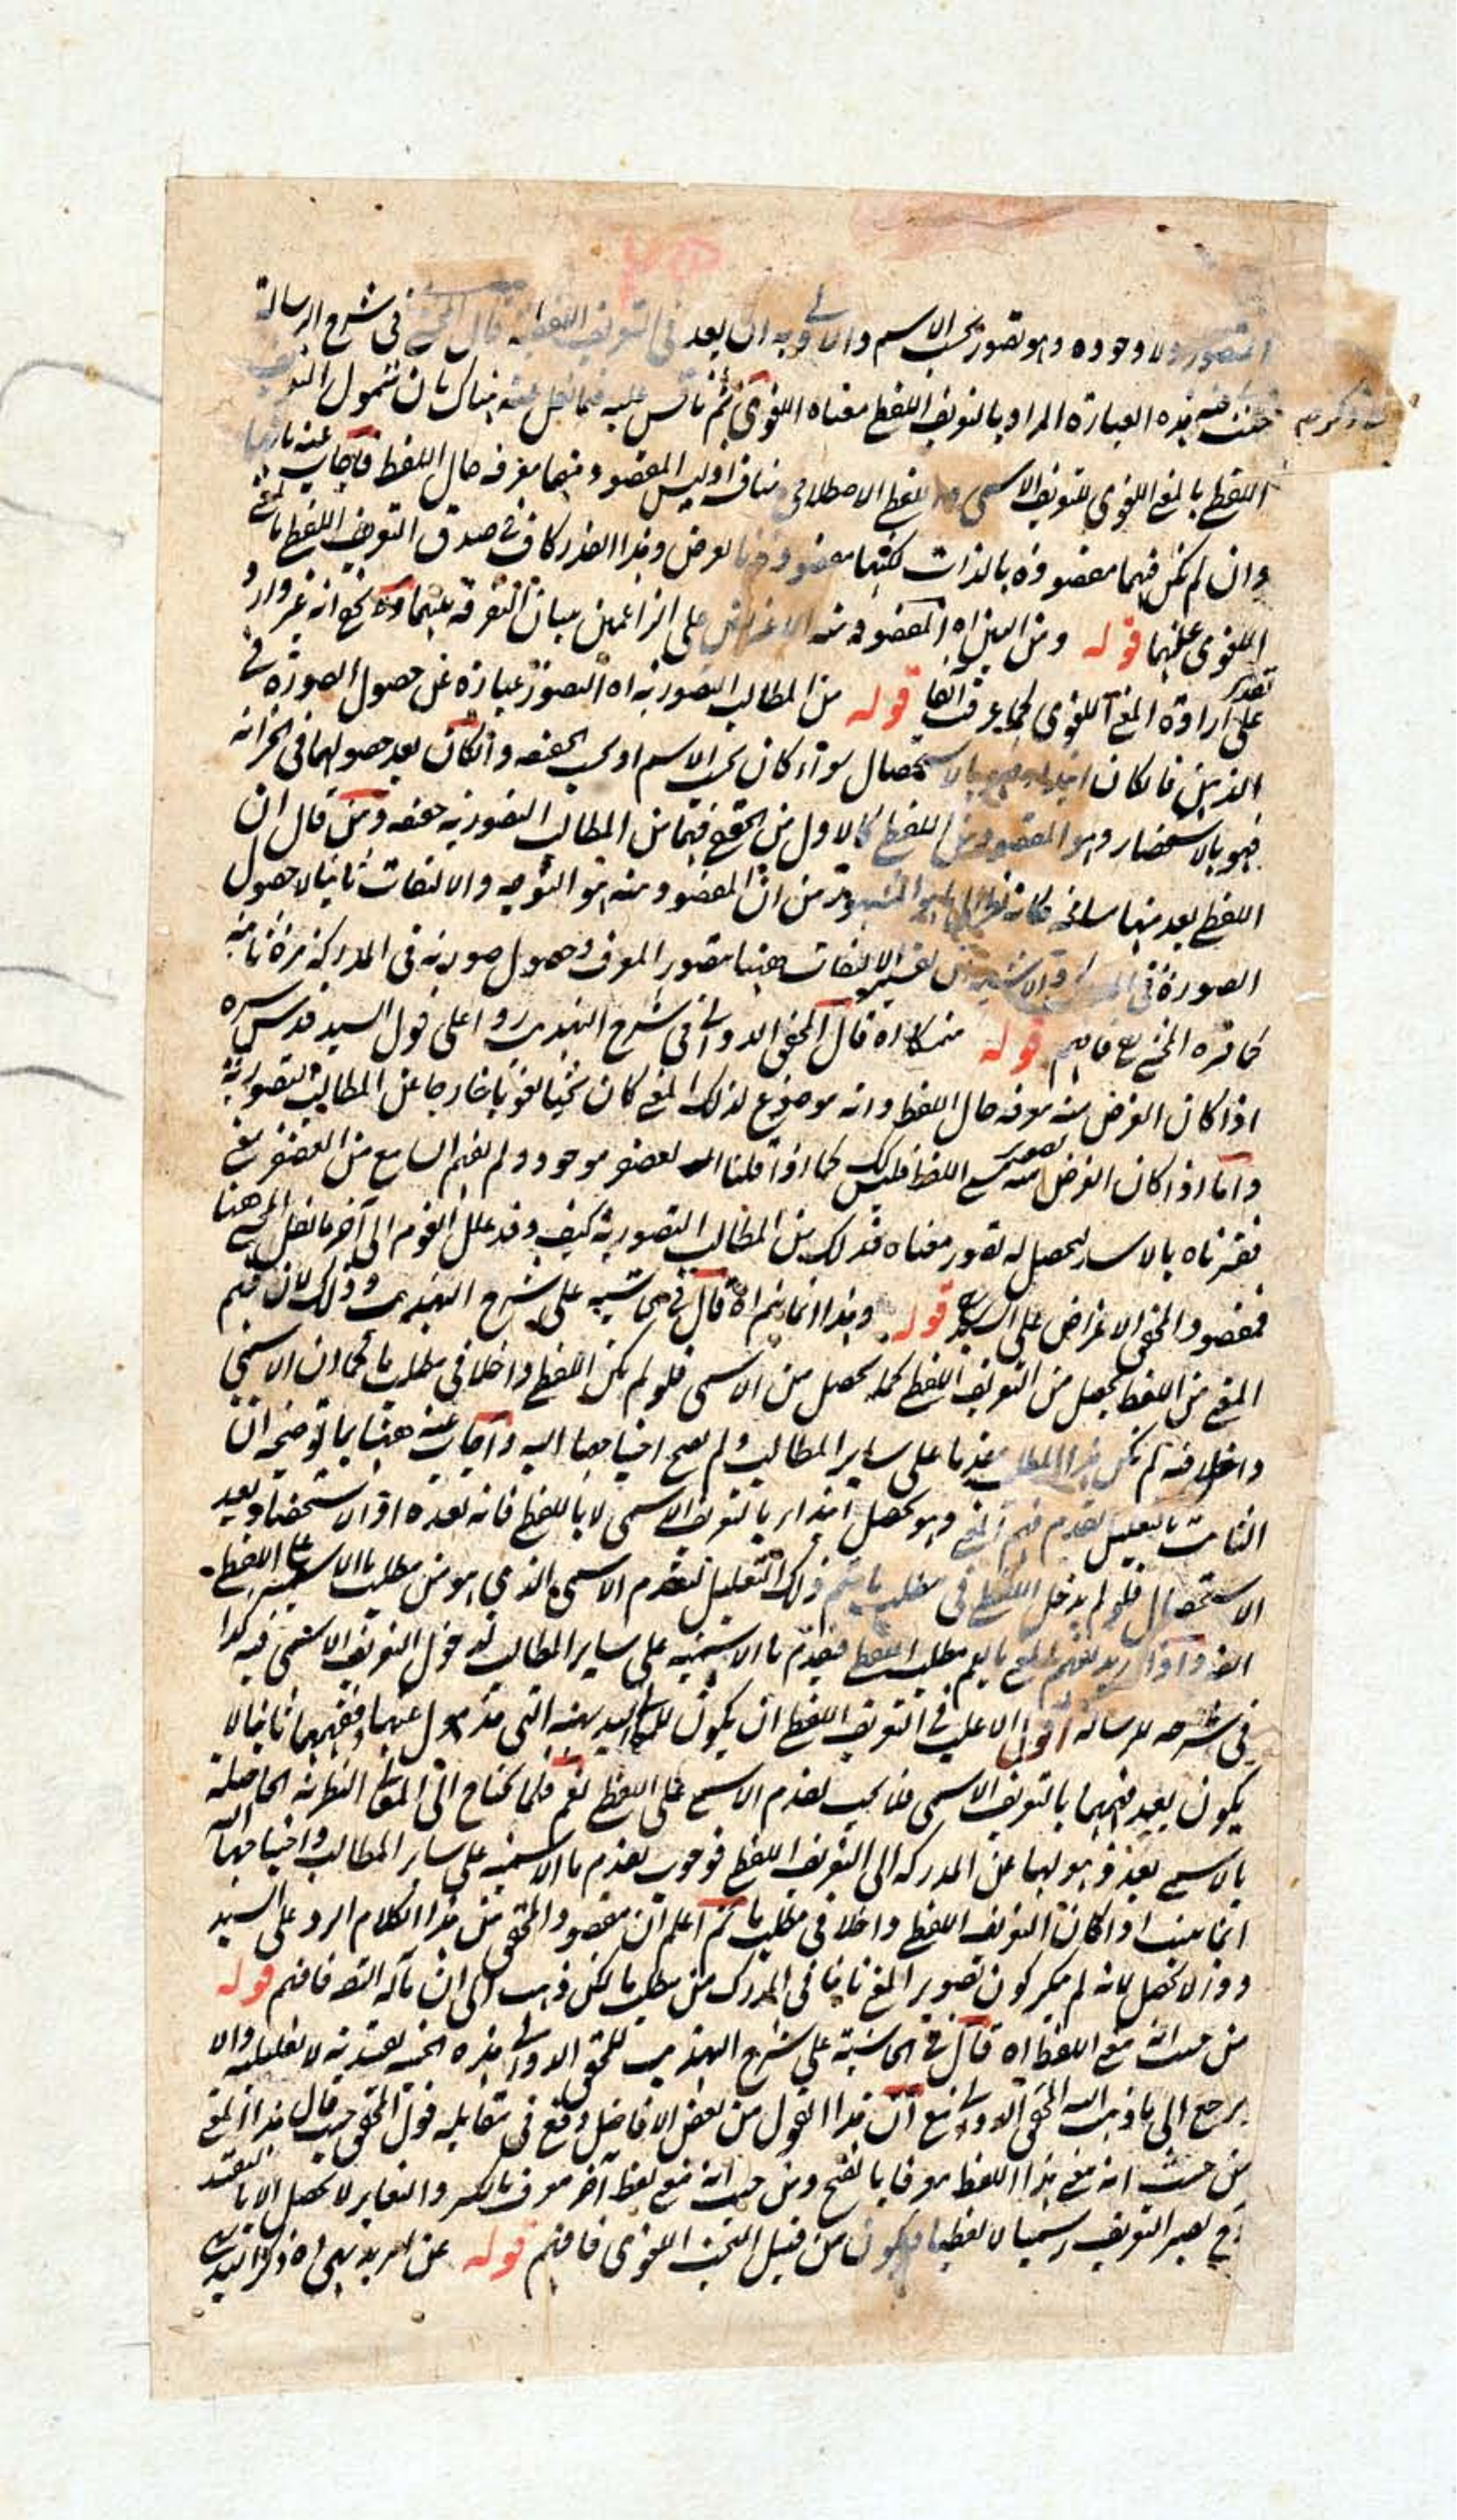 المتصور ولا وجوده وهو تصور بحسب الاسم والا وبه ان يعد في التعريف اللفظي قال المحشي في شرح الرسالة
هذه العبارة المراد بالتعريف اللفظي معناه اللغوي ثم عليه فيما نقل عنه هناك بان شمول التعريف
اللفظي بالمعنى اللغوي للتعريف الاسمي اللفظي الاصطلاحي مناف اذ ليس المقصود منهما معرفة حال اللفظ فاجاب عنه بانها
وان لم تكن فيهما مقصودة بالذات لكنها مقصودة بالعرض وهذا القدر كاف في صدق التعريف اللفظي بالمعنى
اللغوي عليهما قوله ومن البين اه المقصود منه الاعتراض على الزاعمين ببيان التفرقة بينهما ولا يخفى انه غير وارد
على تقدير ارادة المعنى اللغوي كما عرفت آنفا قوله من المطالب التصورية اه التصور عبارة عن حصول الصورة في
الذهن فان كان ابتداء فهو بالاستحصال سواء كان بحسب الاسم او بحسب الحقيقة وان كان بعد حصولها في الخزانة
فهو بالاستحضار وهو المقصود من اللفظي كالاول من الحقيقي فهما من المطالب التصورية حقيقة ومن قال ان
اللفظي يعد منها مسامحة فكانه نظر الى ما هو المشهور من ان المقصود منه هو التوجه والالتفات ثانيا لا حصول
الصورة في تفسير الالتفات ههنا بتصور المعرف وحصول صورته في المدركة مرة ثانية
كما قرره المحشي فافهم قوله متمسكا اه قال المحقق الدواني في شرح التهذيب ردا على قول السيد قدس سره
اذا كان الغرض منه معرفة حال اللفظ وانه موضوع لذلك المعنى كان بحثا لغويا خارجا عن المطالب التصورية
واما اذا كان الغرض منه تصوير معنى اللفظ فليس كذلك كما اذا قلنا الغضنفر موجود ولم يفهم السامع من الغضنفر معنى
ففسرناه بالاسد ليحصل له تصور معناه فذلك من المطالب التصورية كيف وقد علل القوم الى آخر ما نقل المحشي ههنا
فمقصود المحقق الاعتراض على السيد قوله وهذا انما يتم اه قال في حاشيته على شرح التهذيب وذلك لان فهم
المعنى من اللفظ يحصل من التعريف اللفظي كما يحصل من الاسمي فلو لم يكن اللفظي داخلا في مطلب ما كما ان الاسمي
داخل فيه لم يكن هذا المطلب مقدما على سائر المطالب ولم يصح احتياجها اليه واجاب عنه ههنا بما توضيحه ان
الثابت بالتعليل تقدم فهم المعنى وهو يحصل ابتداء بالتعريف الاسمي لا باللفظي فانه بعده اذ الاستحضار بعد
الاستحصال فلو لم يدخل اللفظي في مطلب ما يتم ذلك التعليل لتقدم الاسمي الذي هو من مطلب ما الاسمية على اللفظي
ايضا واذا اريد بفهم المعنى ما يعم مطلب اللفظي فيقدم ما الاسمية على سائر المطالب لدخول التعريف الاسمي فيه كذا
في شرحه للرسالة اقول الاغلب في التعريف اللفظي ان يكون للمعاني البديهية التي قد ذهل عنها ففهمها ثانيا لا
يكون بعد فهمها بالتعريف الاسمي فلا يجب تقدم الاسمي على اللفظي نعم قلما يحتاج الى المعاني النظرية الحاصلة
بالاسمي بعد ذهولها عن المدركة الى التعريف اللفظي فوجوب تقدم ما الاسمية على سائر المطالب واحتياجها اليه
انما يثبت اذا كان التعريف اللفظي داخلا في مطلب ما ثم اعلم ان مقصود المحقق من هذا الكلام الرد على السيد
وذا لا يحصل لانه لم ينكر كون تصوير المعنى ثانيا في المدرك من مطلب ما لكن ذهب الى ان مآله التصديق فافهم قوله
من حيث انه معنى اللفظ اه قال في الحاشية على شرح التهذيب للمحقق الدواني هذه الحيثية تقييدية لا تعليلية والا
يرجع الى ما ذهب اليه المحقق الدواني مع ان هذا القول من بعض الافاضل وقع في مقابلة قول المحقق حيث قال هذا المعنى
من حيث انه معنى هذا اللفظ معرفا بالفتح ومن حيث انه معنى لفظ آخر معرف بالكسر والتغاير لا يحصل الا بالتقييد
يصير التعريف رسميا لا لفظيا فيكون من قبيل البحث اللغوي فافهم قوله عن امر بديهي اه ذكر السيد